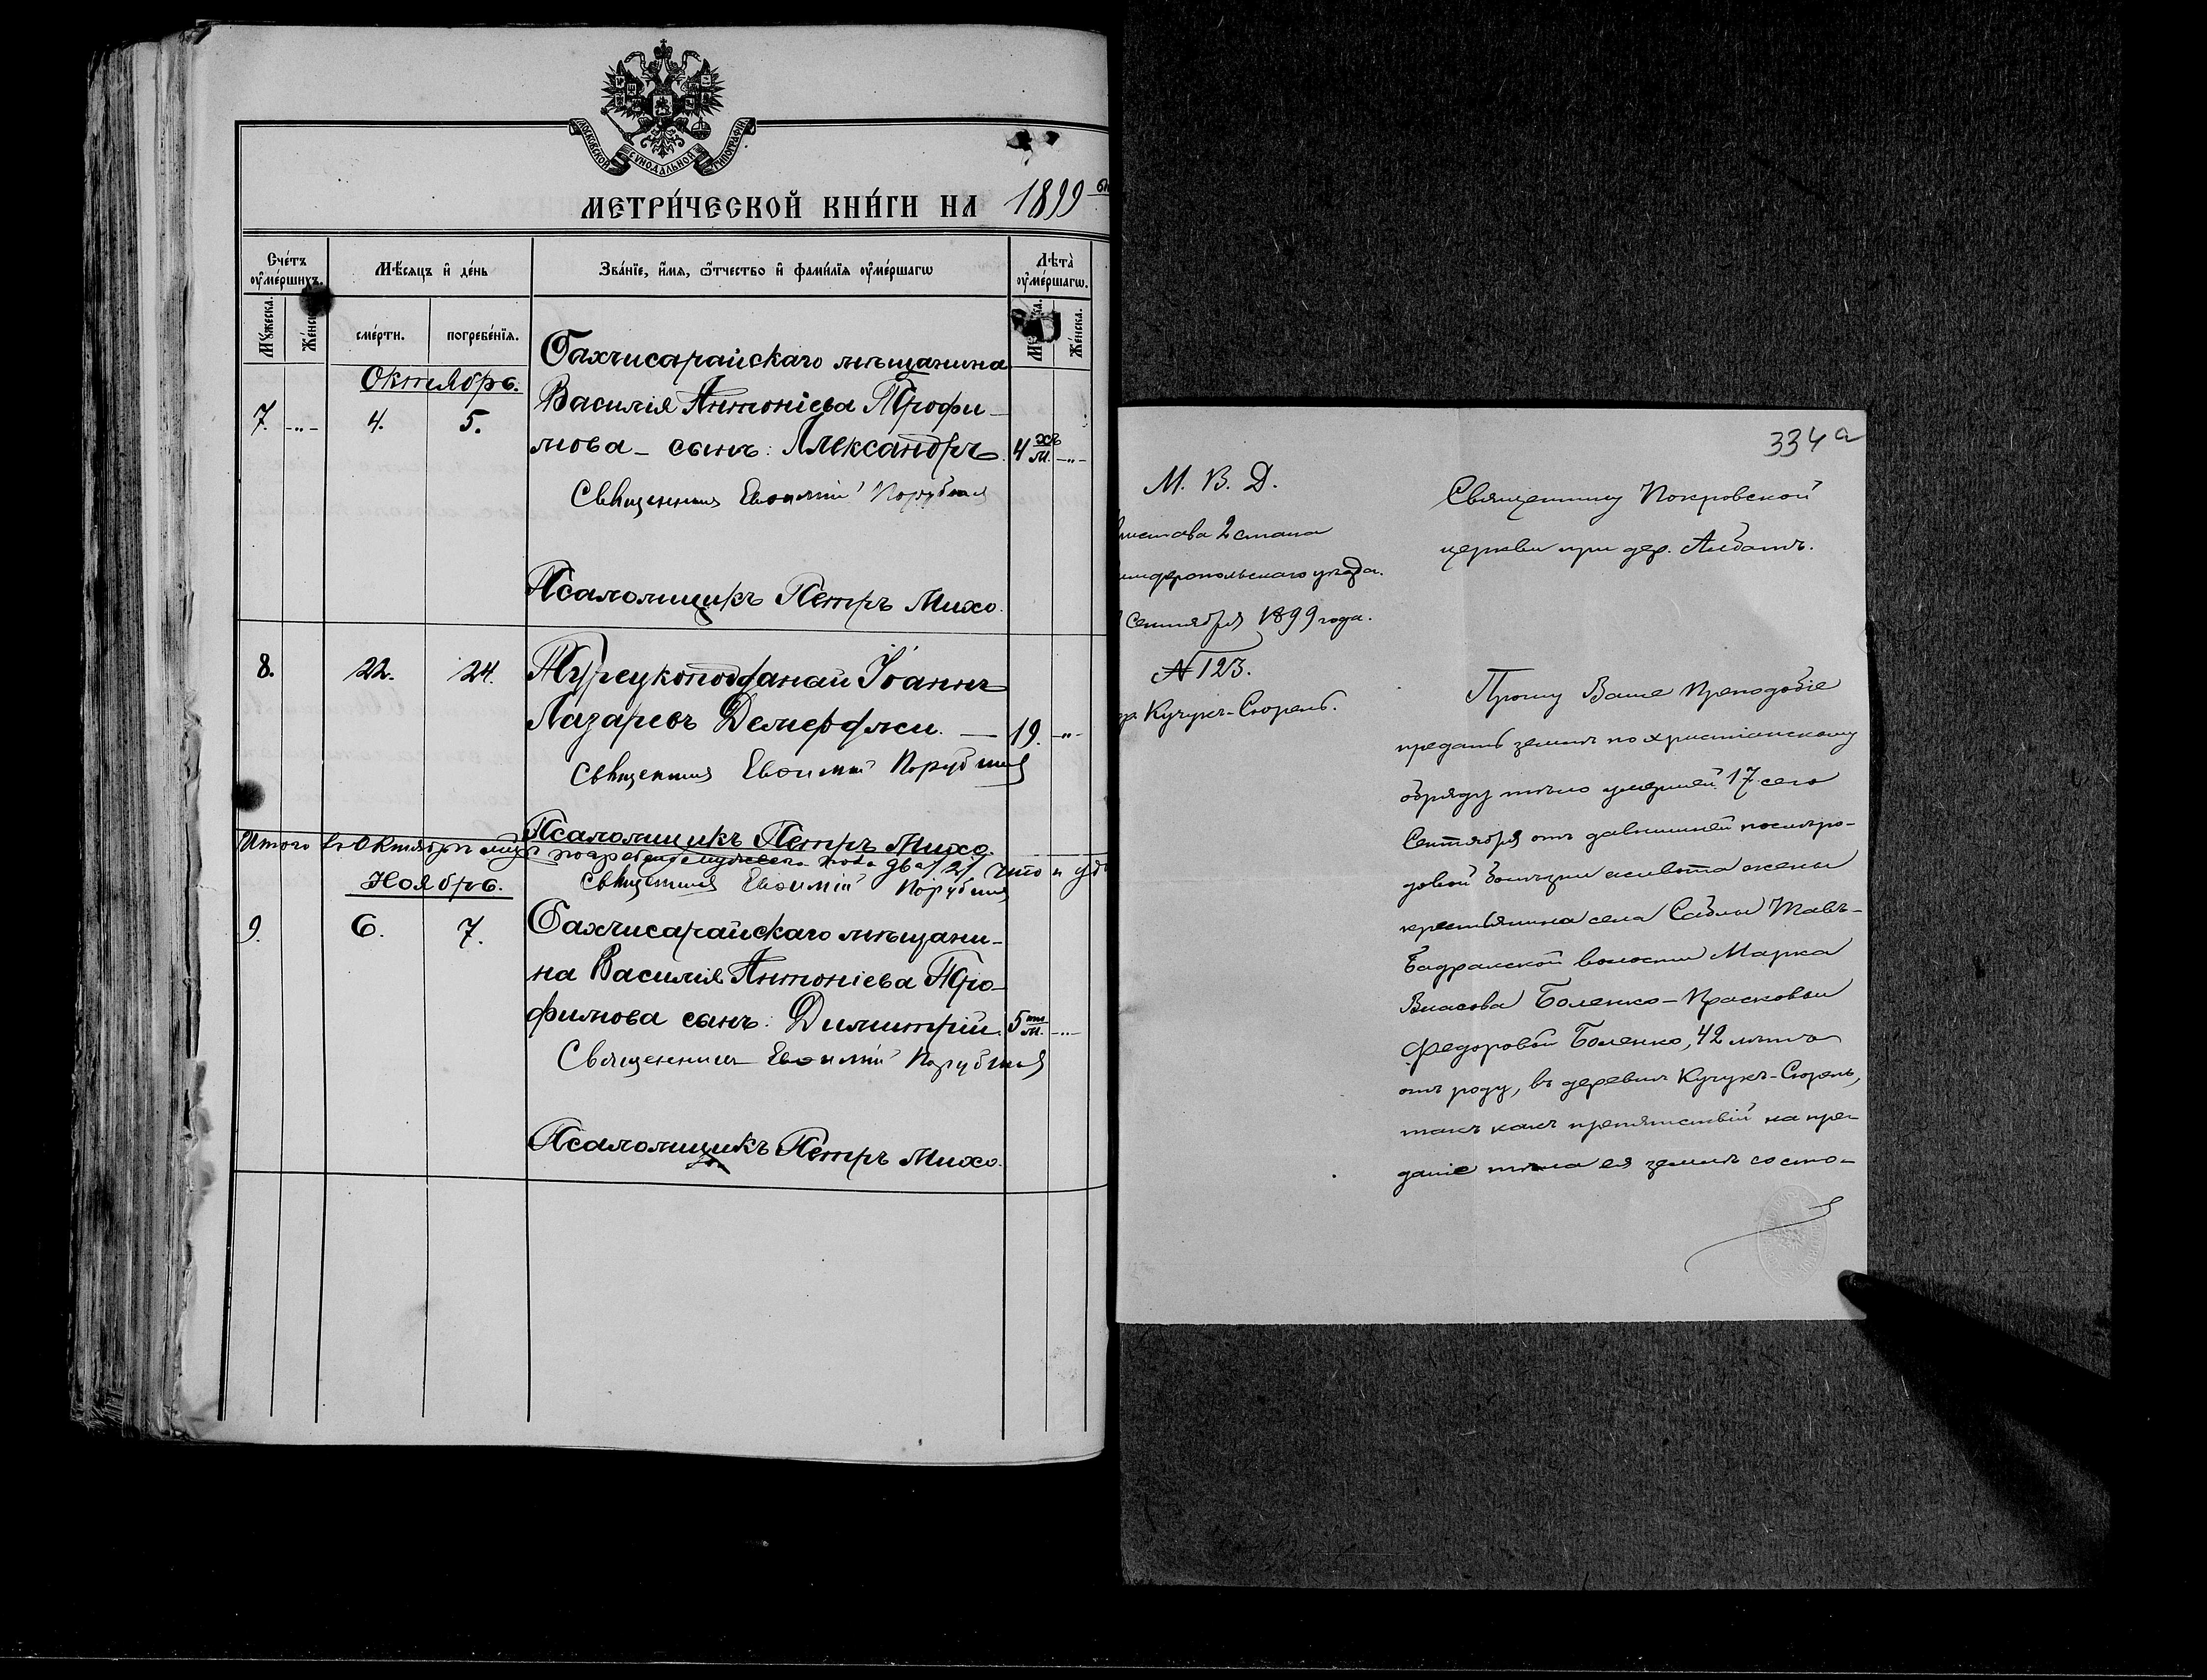 МОСКОВСКОЙ СѴНОДАЛЬНОЙ ТИПОГРАФІИ
МЕТРИ́ЧЕСКОЙ КНИ́ГИ НА 1899
Сче́тъ оу҆ме́ршихъ.
Мѣ́сяцъ и҆ де́нь
Зва́нїе, и҆́мя, ѻ҆́тчество и҆ фами́лїя оу҆ме́ршагѡ
Лѣта̀ оу҆ме́ршагѡ.
Му́жеска.
Же́нска.
сме́рти.
погребе́нїя.
Же́нска.
Октябрь.
Бахчисарайскаго мѣщанина
7. -„- 4. 5. Василія Антоніева Трофи-
мова - сынъ: Александръ. 4 хъ м. -„-
Священникъ Евѳимій
Псаломщикъ Петръ Михо.
8. 22. 24. Турецкоподданый Іоаннъ
Лазаревъ Демерджи. — 19. -„-
Священникъ Евѳимій
Псаломщикъ Петръ Михо.
Итого въ Октябрѣ мцѣ мужеска пола два /2/ что и
Ноябрь.
Священникъ Евѳимій
9. 6. 7. Бахчисарайскаго мѣщани-
на Василія Антоніева Тро-
фимова сынъ: Димитрій. 5 ти м. -„-
Священникъ Евѳимій
Псаломщикъ Петръ Михо.
334 а
М. В. Д.
2 стана
уѣзда.
Сентября 1899 года.
№ 123.
Кучукъ-Сюрень.
Священнику Покровской
церкви при дер. Албатъ.
Прошу Ваше Преподобіе
предать землѣ по христіанскому
обряду тѣло умершей 17 сего
Сентября отъ давнишней послѣро-
довой болѣзни живота жены
крестьянина села Саблы Тавъ-
Бадракской волости Марка
Власова Боленко - Прасковьи
Федоровой Боленко, 42 лѣтъ
отъ роду, въ деревнѣ Кучукъ-Сюрень,
такъ какъ препятствій на пре-
даніе тѣла ея землѣ со сто-